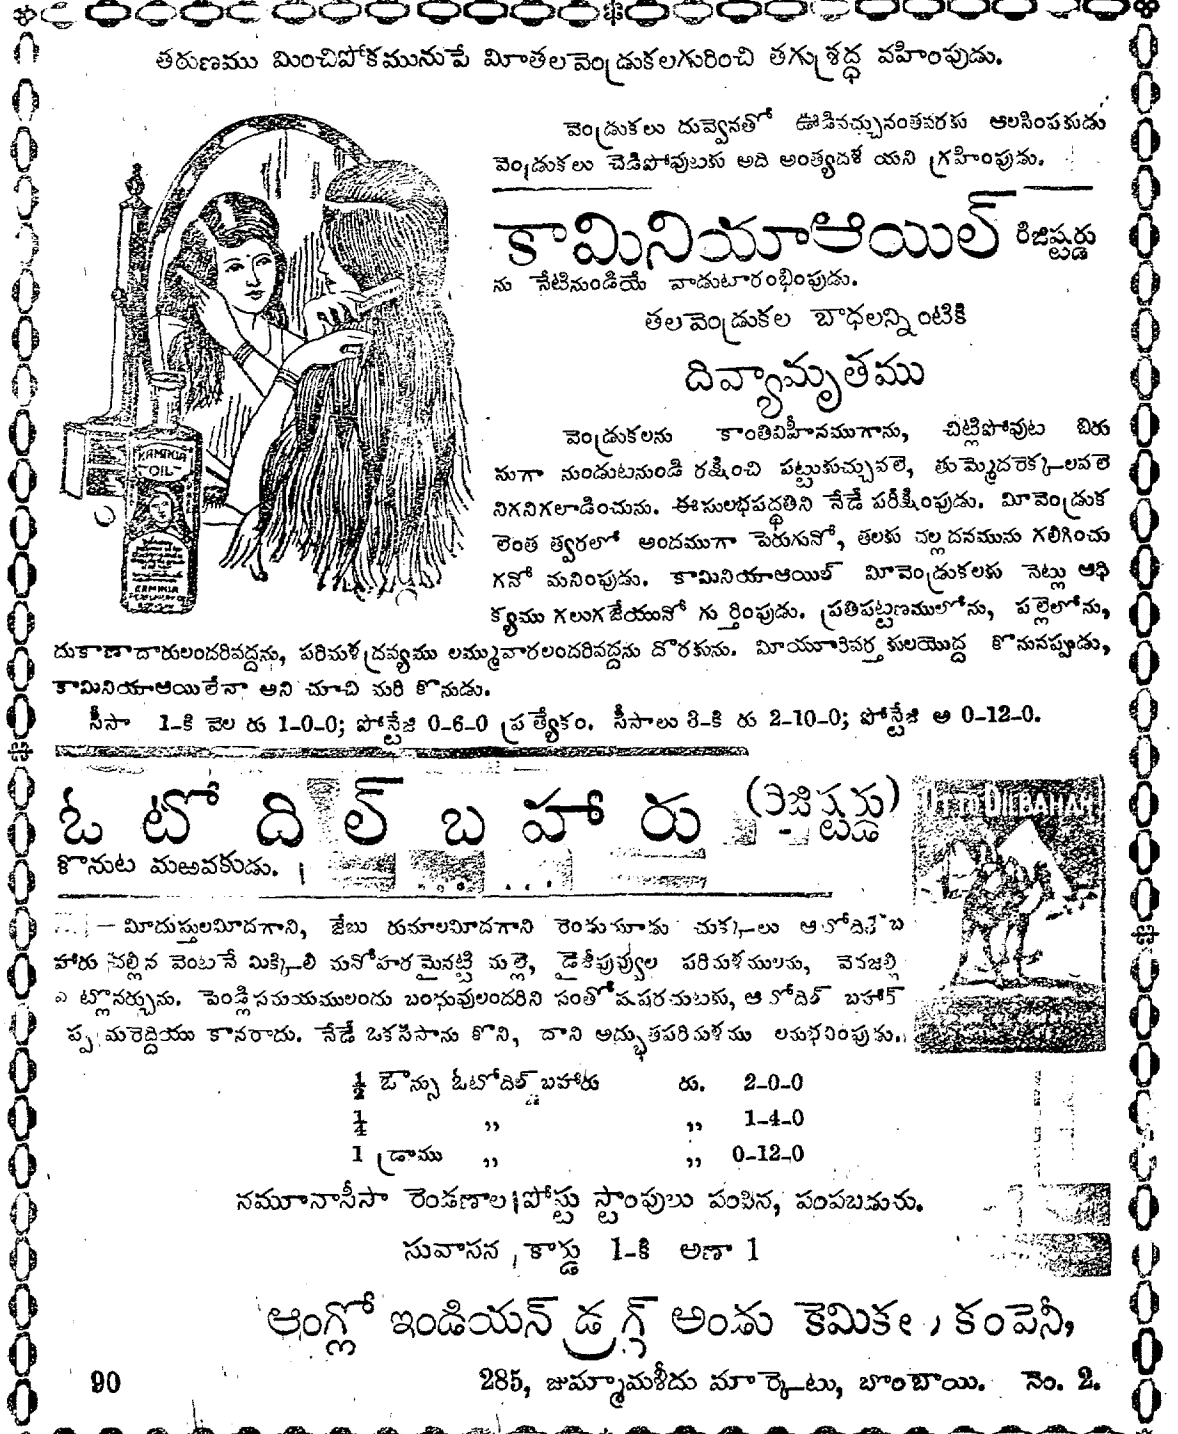 తరుణము మించిపోకమునుపే మీతలవెండ్రుకలగురించి తగుశ్రద్ధ వహింపుడు.
వెండ్రుకలు దువ్వెనతో ఊడివచ్చునంతవరకు ఆలసింపకుడు
వెండ్రుకలు చెడిపోవుటకు అది అంత్యదశ యని గ్రహింపుడు.
కామినియాఆయిల్ రిజిష్టర్డు
ను నేటినుండియే వాడుటారంభింపుడు.
తలవెండ్రుకల బాధలన్నింటికి
దివ్యామృతము
KAMINIA
OIL
వెండ్రుకలను కాంతివిహీనముగాను, చిట్లిపోవుట బిరు
సుగా నుండుటనుండి రక్షించి పట్టుకుచ్చువలె, తుమ్మెదరెక్కలవలె
నిగనిగలాడించును. ఈసులభపద్ధతిని నేడే పరీక్షింపుడు. మీవెండ్రుక
లెంత త్వరలో అందముగా పెరుగునో, తలకు చల్లదనమును గలిగించు
గనో మనింపుడు. కామినియాఆయిల్ మీవెండ్రుకలకు నెట్లు ఆధి
క్యము గలుగజేయునో గుర్తింపుడు. ప్రతిపట్టణములోను, పల్లెలోను,
దుకాణాదారులందరివద్దను, పరిమళద్రవ్యము లమ్మువారలందరివద్దను దొరకును. మీయూరివర్తకులయొద్ద కొనునప్పుడు,
కామినియాఆయిలేనా అని చూచి మరి కొనుడు.
సీసా 1-కి వెల రు 1-0-0; పోస్టేజి 0-6-0 ప్రత్యేకం. సీసాలు 3-కి రు 2-10-0; పోస్టేజి అ 0-12-0.
ఓటోదిల్ బహారు (రిజిష్టర్డు)
OTTO DILBAHAR
కొనుట మఱవకుడు.
— మీదుస్తులమీదగాని, జేబు రుమాలమీదగాని రెండుమూడు చుక్కలు ఆటోదిల్ బ
హారు చల్లిన వెంటనే మిక్కిలి మనోహరమైనట్టి మల్లె, డైకీపువ్వుల పరిమళములను, వెదజల్లి
ట్లొనర్చును. పెండ్లిసమయములందు బంధువులందరిని సంతోషపరచుటకు, ఆటోదిల్ బహార్
ప్ప మరెద్దియు కానరాదు. నేడే ఒకసీసాను కొని, దాని అద్భుతపరిమళము లనుభవింపుడు.
½ ఔన్సు ఓటోదిల్ బహారు రు. 2-0-0
¼ ,, ,, 1-4-0
1 డ్రాము ,, ,, 0-12-0
నమూనాసీసా రెండణాల పోస్టు స్టాంపులు పంపిన, పంపబడును.
సువాసన కార్డు 1-కి అణా 1
ఆంగ్లో ఇండియన్ డ్రగ్ అండు కెమికల్ కంపెనీ,
285, జుమ్మామశీదు మార్కెటు, బొంబాయి. నెం. 2.
90